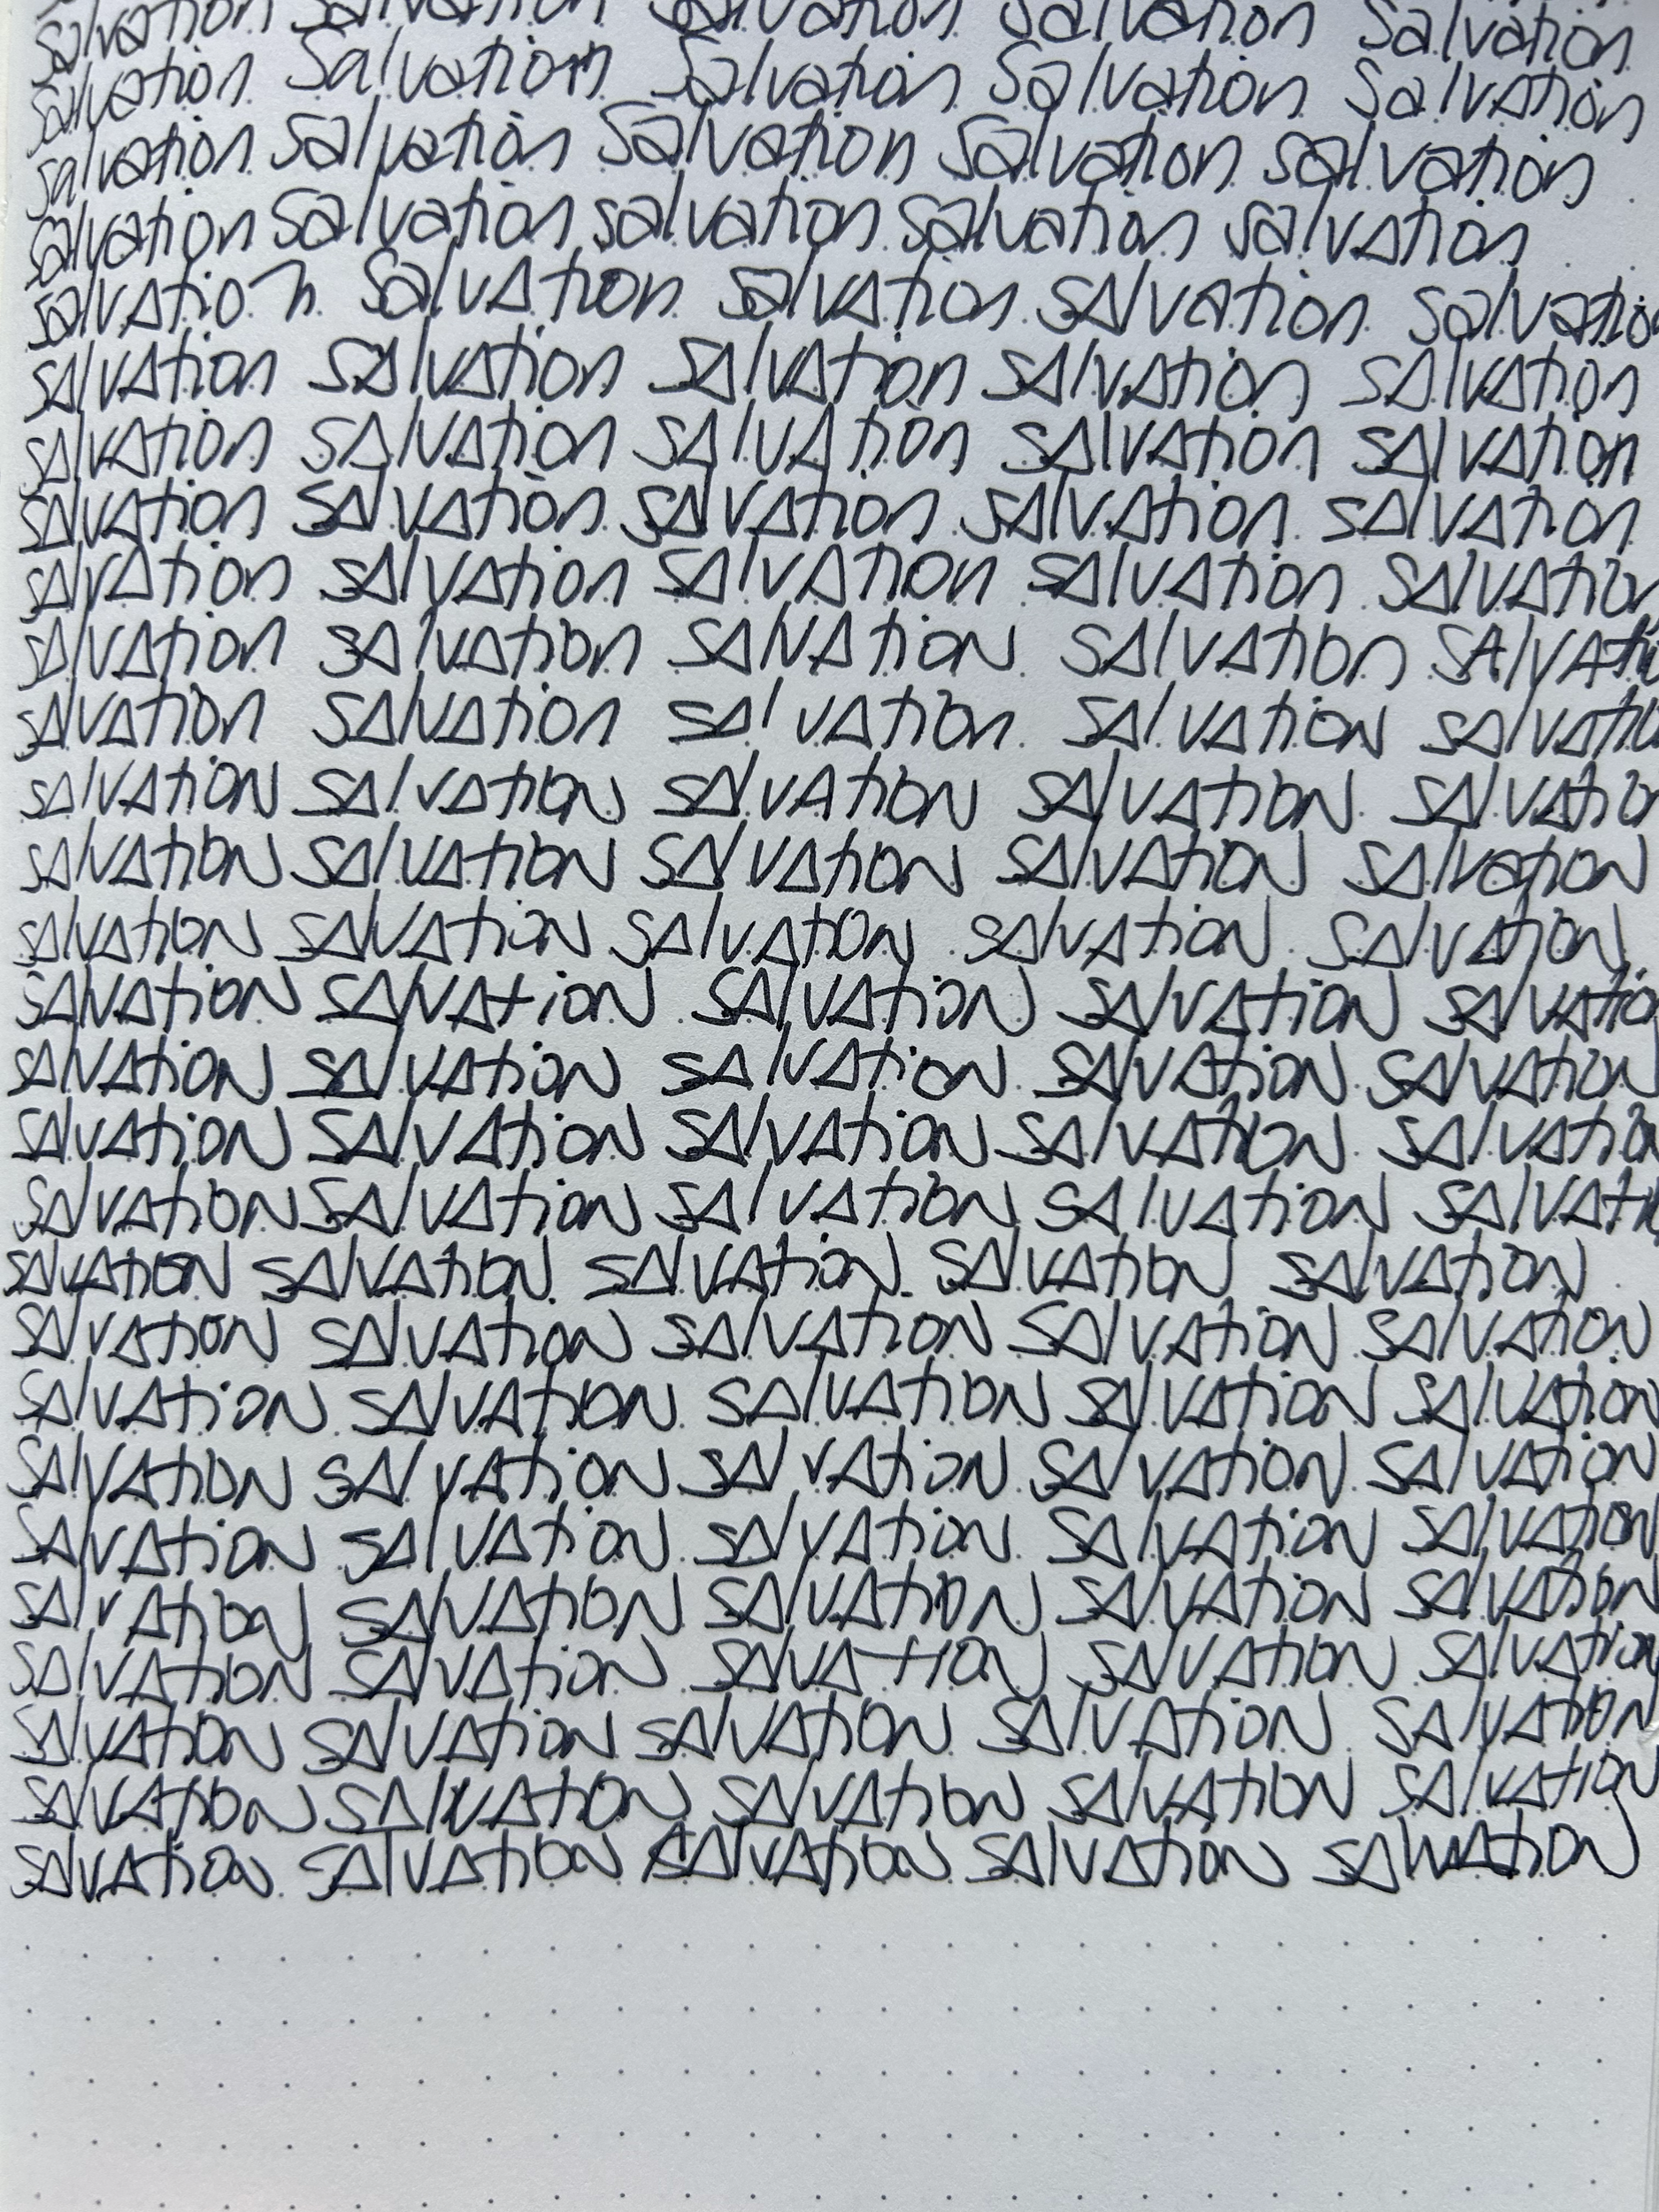 salvation salvation salvation salvation Salvation
Salvation Salvation Salvation Salvation SalvAtion
salvation Salvation Salvation Salvation salvation
salvation Salvation salvation Salvation salvAtion
salvAtion Salvation salvAtion SAlvAtion Salvation
SAlvAtion SAlvAtion SAlvAtion SAlvAtion SAlvAtion
SAlvAtion SAlvAtion SAlvAtion SAlvAtion SAlvAtion
SAlvAtion SAlvAtion SAlvAtion SAlvAtion SAlvAtion
SAlvAtion SAlvAtion SAlvAtion SAlvAtion SAlvAtion
SAlvAtion SAlvAtion SAlvAtioN SAlvAtion SAlvAti
SAlvAtion SAlvAtion SAlvAtion SAlvAtioN SAlvAti
SAlvAtioN SAlvAtioN SAlvAtioN SAlvAtioN SAlvAtio
SAlvAtioN SAlvAtioN SAlvAtioN SAlvAtioN SAlvatioN
SAlvAtioN SAlvAtioN SAlvAtioN SAlvAtioN SAlvAtioN
SAlvAtioN SAlvAtioN SAlvAtioN SAlvAtioN SAlvAtio
SAlvAtioN SAlvAtioN SAlvAtioN SAlvAtioN SAlvAtioN
SAlvAtioN SAlvAtioN SAlvAtioN SAlvAtioN SAlvAtio
SAlvAtioN SAlvAtioN SAlvAtioN SAlvAtioN SAlvAti
SAlvAtioN SAlvAtioN SAlvAtioN SAlvAtioN SAlvAtioN
SAlvAtioN SAlvAtioN SAlvAtioN SAlvAtioN SAlvAtioN
SAlvAtioN SAlvAtioN SAlvAtioN SAlvAtioN SAlvAtioN
SAlvAtioN SAlvAtioN SAlvAtioN SAlvAtioN SAlvAtioN
SAlvAtioN SAlvAtioN SAlvAtioN SAlvAtioN SAlvAtioN
SAlvAtioN SAlvAtioN SAlvAtioN SAlvAtioN SAlvAtioN
SAlvAtioN SAlvAtioN SAlvAtioN SAlvAtioN SAlvAtioN
SAlvAtioN SAlvAtioN SAlvAtioN SAlvAtioN SAlvAtioN
SAlvAtioN SAlvAtioN SAlvAtioN SAlvAtioN SAlvAtioN
SAlvAtioN SAlvAtioN SAlvAtioN SAlvAtioN SAlvAtioN